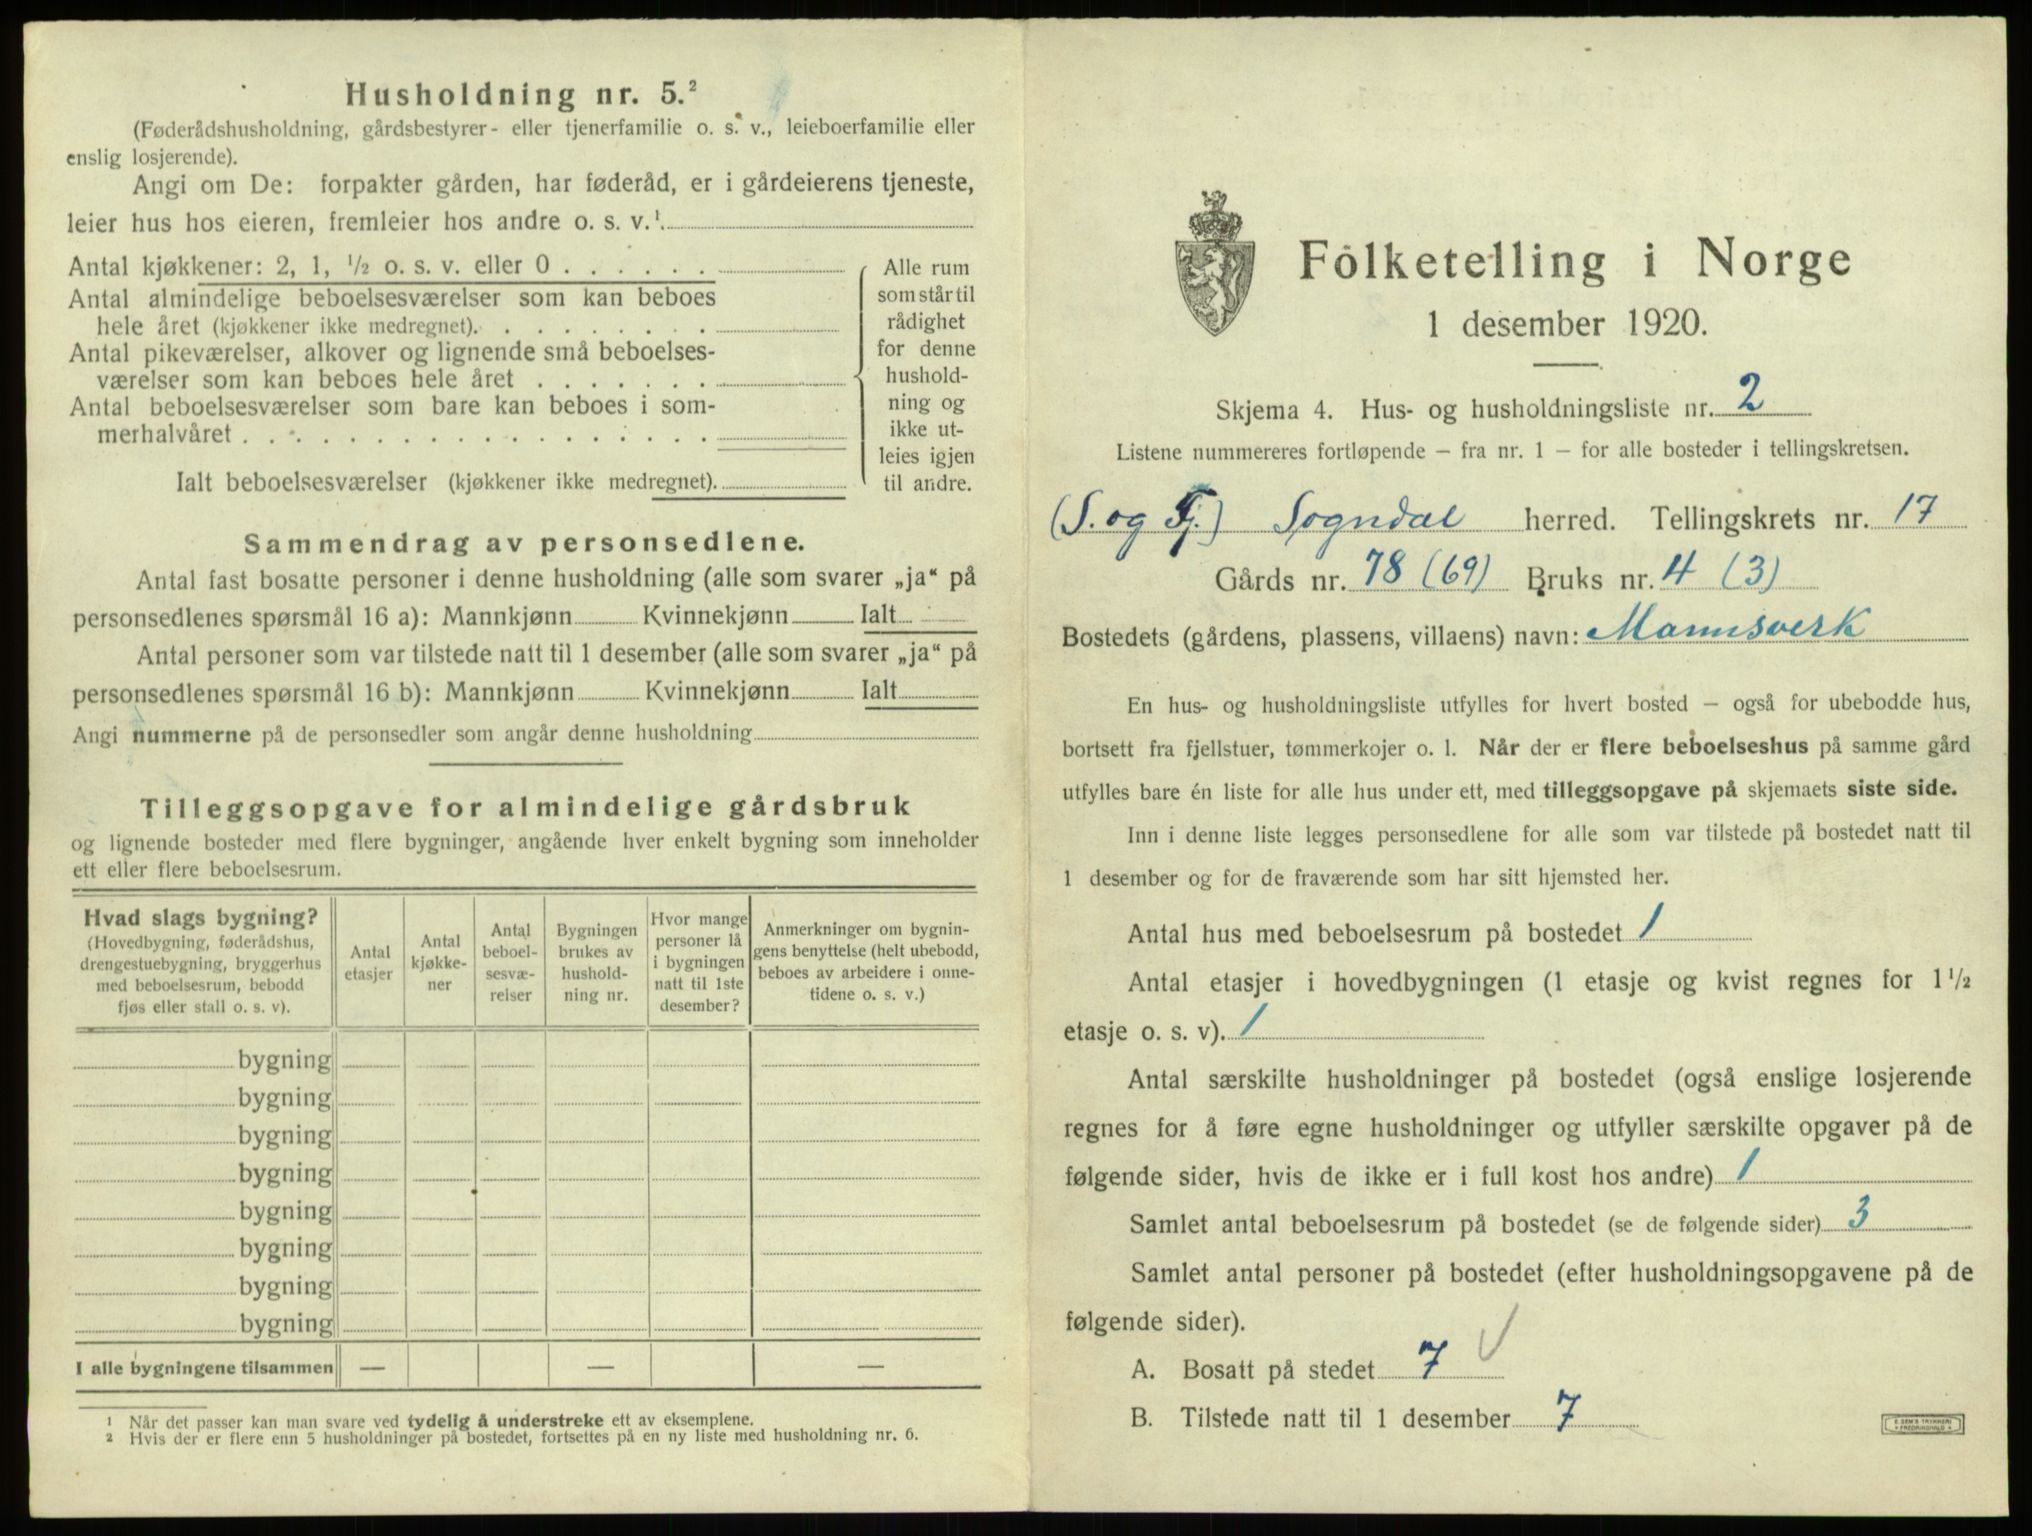 Husholdning nr. 5.²
(Føderådshusholdning, gårdsbestyrer- eller tjenerfamilie o. s. v., leieboerfamilie eller
enslig losjerende).
Angi om De: forpakter gården, har føderåd, er i gårdeierens tjeneste,
leier hus hos eieren, fremleier hos andre o. s. v.¹
Antal kjøkkener: 2, 1, ½ o. s. v. eller 0
Antal almindelige beboelsesværelser som kan beboes
hele året (kjøkkener ikke medregnet).
Antal pikeværelser, alkover og lignende små beboelses-
værelser som kan beboes hele året
Antal beboelsesværelser som bare kan beboes i som-
merhalvåret
Ialt beboelsesværelser (kjøkkener ikke medregnet).
Alle rum
som står til
rådighet
for denne
hushold-
ning og
ikke ut-
leies igjen
til andre.
Sammendrag av personsedlene.
Antal fast bosatte personer i denne husholdning (alle som svarer „ja“ på
personsedlenes spørsmål 16 a): Mannkjønn Kvinnekjønn Ialt
Antal personer som var tilstede natt til 1 desember (alle som svarer „ja“ på
personsedlenes spørsmål 16 b): Mannkjønn Kvinnekjønn Ialt
Angi nummerne på de personsedler som angår denne husholdning
Tilleggsopgave for almindelige gårdsbruk
og lignende bosteder med flere bygninger, angående hver enkelt bygning som inneholder
ett eller flere beboelsesrum.
Hvad slags bygning?
(Hovedbygning, føderådshus,
drengestuebygning, bryggerhus
med beboelsesrum, bebodd
fjøs eller stall o. s. v).
Antal
etasjer
Antal
kjøkke-
ner
Antal
beboel-
sesvæ-
relser
Bygningen
brukes av
hushold-
ning nr.
Hvor mange
personer lå
i bygningen
natt til 1ste
desember?
Anmerkninger om bygnin-
gens benyttelse (helt ubebodd,
beboes av arbeidere i onne-
tidene o. s. v.)
bygning
bygning
bygning
bygning
bygning
bygning
bygning
bygning
I alle bygningene tilsammen — — —
¹ Når det passer kan man svare ved tydelig å understreke ett av eksemplene.
² Hvis der er flere enn 5 husholdninger på bostedet, fortsettes på en ny liste med husholdning nr. 6.
Folketelling i Norge
1 desember 1920.
Skjema 4. Hus- og husholdningsliste nr. 2
Listene nummereres fortløpende – fra nr. 1 – for alle bosteder i tellingskretsen.
(S. og Fj.) Sogndal herred. Tellingskrets nr. 17
Gårds nr. 78 (69) Bruks nr. 4 (3)
Bostedets (gårdens, plassens, villaens) navn: Mannsverk
En hus- og husholdningsliste utfylles for hvert bosted – også for ubebodde hus,
bortsett fra fjellstuer, tømmerkojer o. l. Når der er flere beboelseshus på samme gård
utfylles bare én liste for alle hus under ett, med tilleggsopgave på skjemaets siste side.
Inn i denne liste legges personsedlene for alle som var tilstede på bostedet natt til
1 desember og for de fraværende som har sitt hjemsted her.
Antal hus med beboelsesrum på bostedet 1
Antal etasjer i hovedbygningen (1 etasje og kvist regnes for 1½
etasje o. s. v). 1
Antal særskilte husholdninger på bostedet (også enslige losjerende
regnes for å føre egne husholdninger og utfyller særskilte opgaver på de
følgende sider, hvis de ikke er i full kost hos andre) 1
Samlet antal beboelsesrum på bostedet (se de følgende sider) 3
Samlet antal personer på bostedet (efter husholdningsopgavene på de
følgende sider).
A. Bosatt på stedet 7 ✓
B. Tilstede natt til 1 desember 7
E. SEM'S TRYKKERI
FREDRIKSHALD